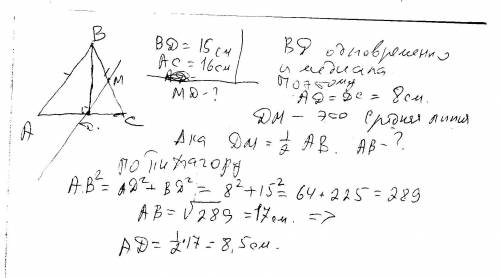 B
M
A
D
C
BD = 15 см
AC = 16 см
MD - ?
BD одновременно
и медиана
поэтому
AD = DC = 8 см.
DM - это средняя линия
DM = 1/2 AB. AB - ?
по пифагору
AB² = AD² + BD² = 8² + 15² = 64 + 225 = 289
AB = √289 = 17 см. =>
AD = 1/2 · 17 = 8,5 см.